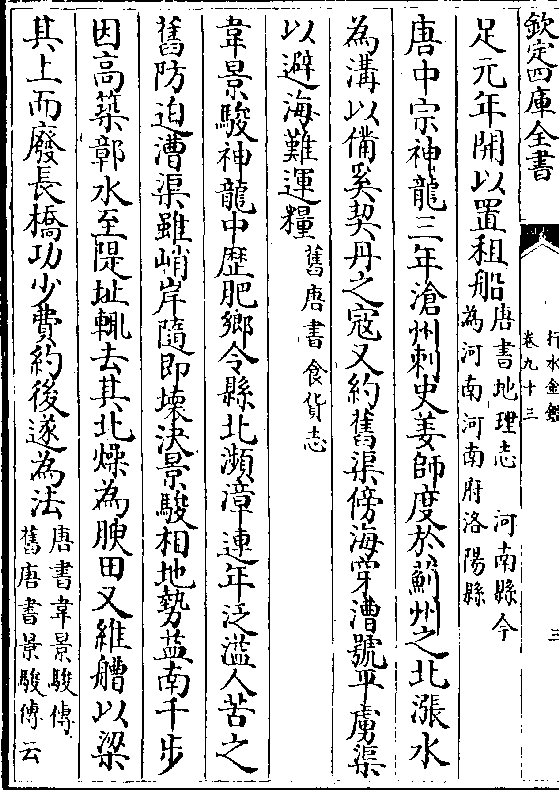 欽定四庫全書
行水金鑑
卷九十三
三
足元年開以置租船唐書地理志 河南縣今
為河南河南府洛陽縣
唐中宗神龍三年滄州刺史姜師度於薊州之北漲水
為溝以備奚契丹之寇又約舊渠傍海穿漕號平虜渠
以避海難運糧舊唐書食貨志
韋景駿神龍中歷肥鄉令縣北瀕漳連年泛濫人苦之
舊防迫漕渠雖峭岸隨即壞決景駿相地勢益南千步
因高築鄣水至隄址輒去其北燥為腴田又維艚以梁
其上而廢長橋功少費約後遂為法唐書韋景駿傳
舊唐書景駿傳云